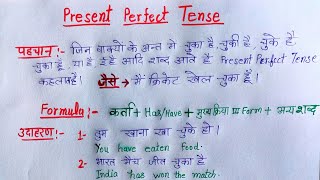 Present Perfect Tense
पहचान :- जिन वाक्यों के अन्त में चुका है, चुकी है, चुके है
चुका हूँ, या है ई है आदि शब्द आते हैं Present Perfect Tense
कहलाता है। जैसे - मैं क्रिकेट खेल चुका हूँ।
Formula:- कर्ता + Has/Have + मुख्य क्रिया III Form + अन्य शब्द
उदाहरण:- 1. तुम खाना खा चुके हो।
You have eaten food.
2- भारत मैच जीत चुका है
India has won the match.